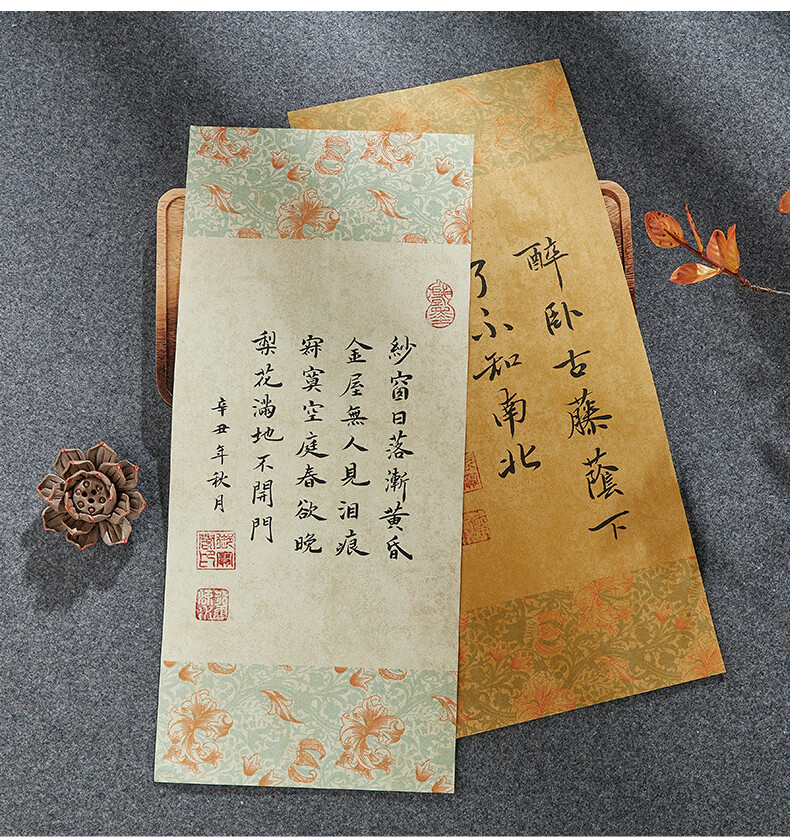 紗窗日落漸黃昏
金屋無人見泪痕
寂寞空庭春欲晚
梨花滿地不開門
辛丑年秋月
醉卧古藤蔭下
了不知南北